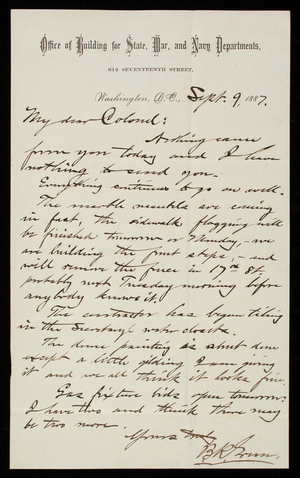 Office of Building for State, War, and Navy Departments,
612 SEVENTEENTH STREET,
Washington, D.C., Sept. 9, 1887.
My dear Colonel:
Nothing came
from you today and I have
nothing to send you.
Everything continues to go on well.
The marble mantels are coming
in fast, the sidewalk flagging will
be finished tomorrow or Monday,—we
are building the front steps,—and
will remove the fence in 17th St.
probably next Tuesday morning before
anybody knows it.
The contractor has begun tiling
in the Secretary's water closets.
The dome painting is about done
except a little gilding I am giving
it and we all think it looks fine.
Gas fixture bids open tomorrow.
I have two and think there may
be two more.
Yours truly
B.R. Green